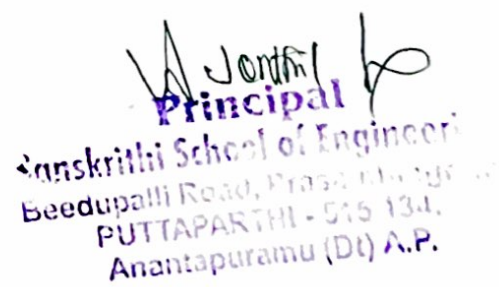 Principal
Sanskrithi School of Engineeri
Beedupalli Road,
PUTTAPARTHI - 515 134.
Anantapuramu (Dt) A.P.